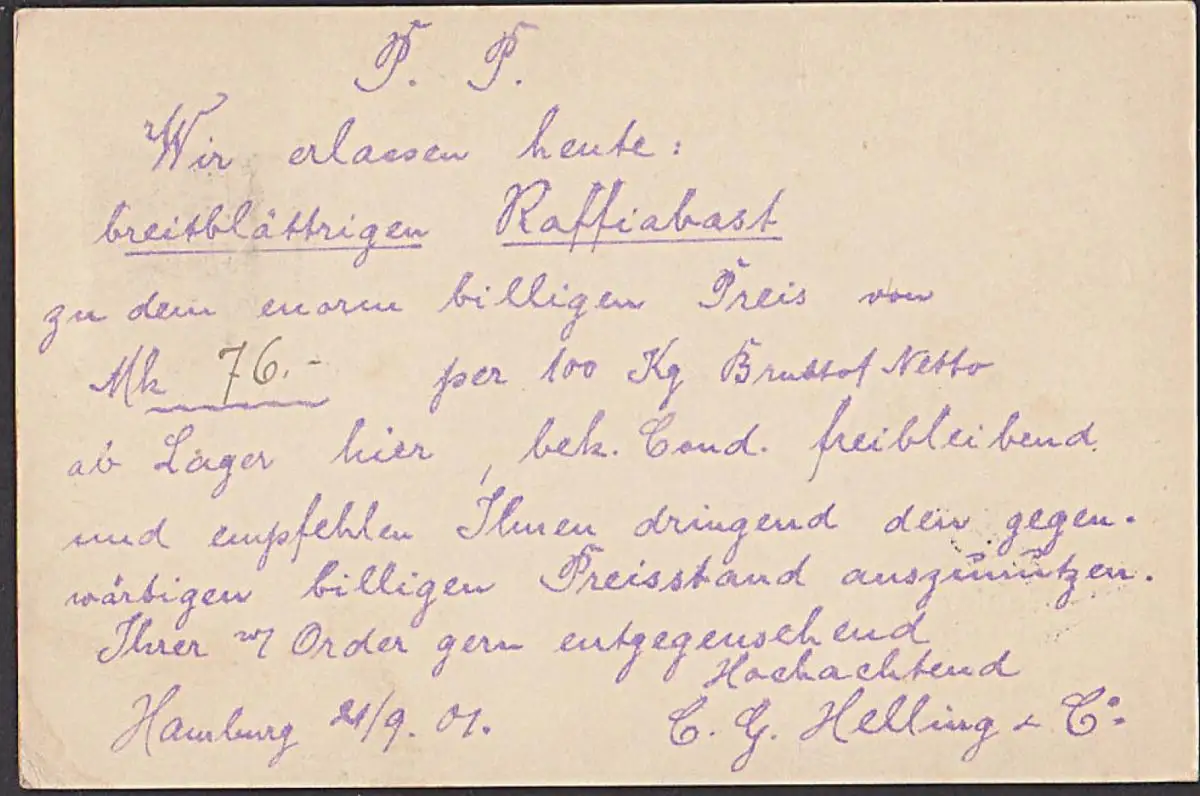 P. P.
Wir erlassen heute:
breitblättrigen Raffiabast
zu dem enorm billigen Preis von
Mk 76.- per 100 Kg Brutto f Netto
ab Lager hier, bek. Cond. freibleibend
und empfehlen Ihnen dringend den gegen-
wärtigen billigen Preisstand auszunützen.
Ihrer Order gern entgegensehend
Hochachtend
Hamburg 21/9. 01. C. G. Helling & Co.